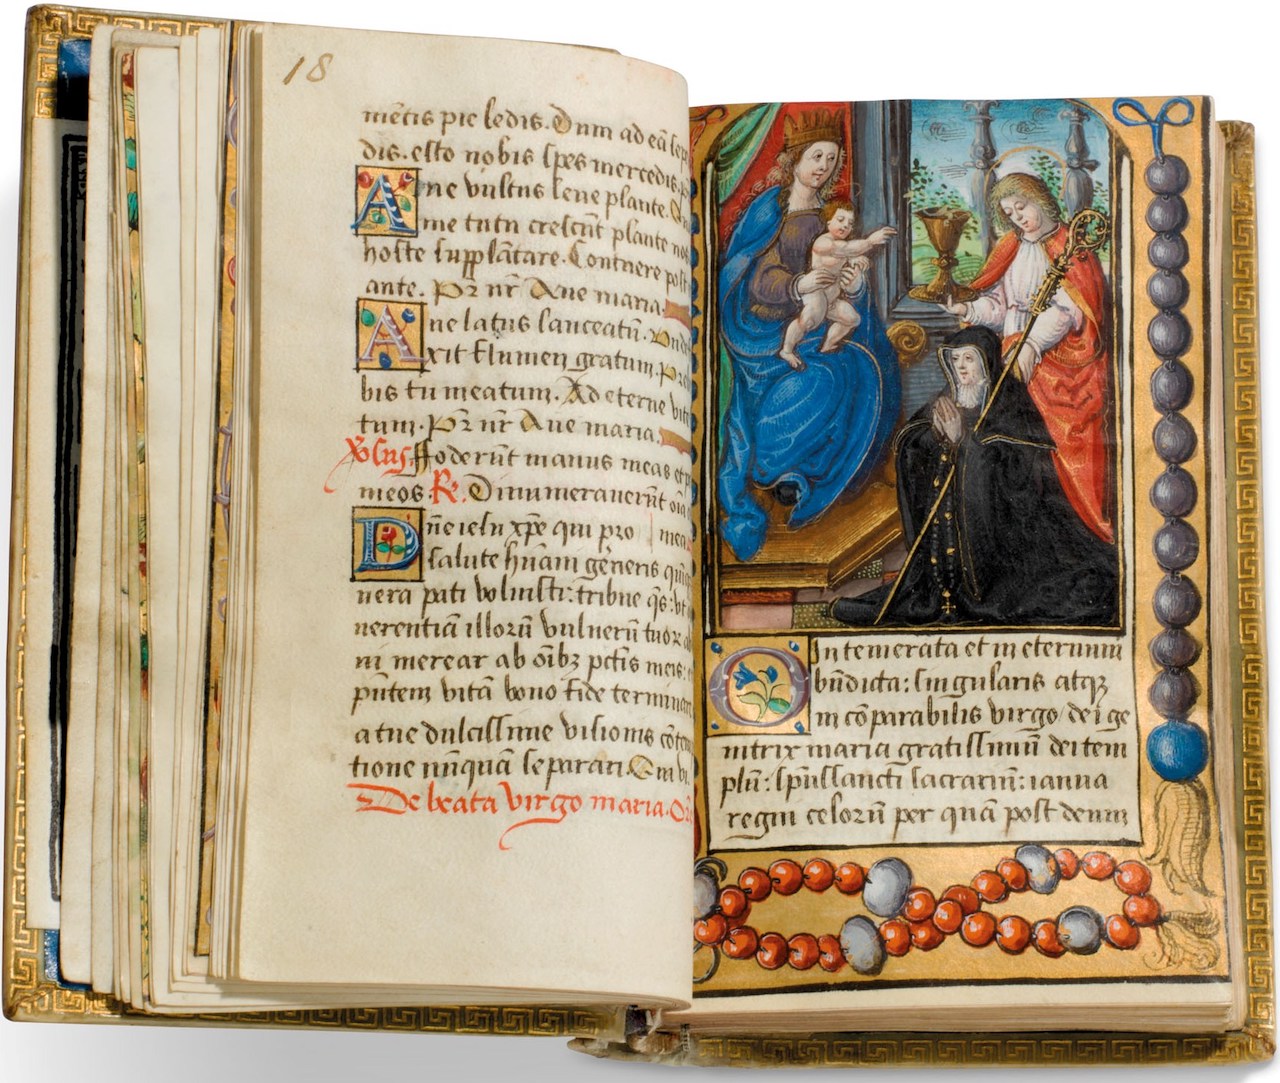 18
mētis pie ledis. Dum ad eā sep
dis. esto nobis spes mercedis.
Aue vultus leue plante. Q
me tutu crescūt plante nos
hoste supplātare. Conterere post
ante. Pr nr Aue maria.
Aue latus lanceatū. Vnde
Axit flumen gratum.
bis tu meatum. Ad eterne vite
tum. Pr nr Aue maria.
Foderūt manus meas et p
meos. R. Dinumerauerūt oīa
mea
Dn̄e iesu xp̄e qui pro
salute hūani gēneris quīq
nera pati voluisti: tribue q̄s: vt
uerentiā illorū vulnerū tuor
ni merear ab oīb9 pctīs meis:
pn̄tem vitā bono fide terminare
atue dulcissime visionis cōtem
tione nūnquā separari. Qui vi.
De beata virgo maria. Or
O Intemerata et in eternum
bn̄dicta: singularis atq3
in cōparabilis virgo dei ge
nitrix maria gratissimū dei tem
plū: spūssancti sacrariū: ianua
regni celorū per quā post deum